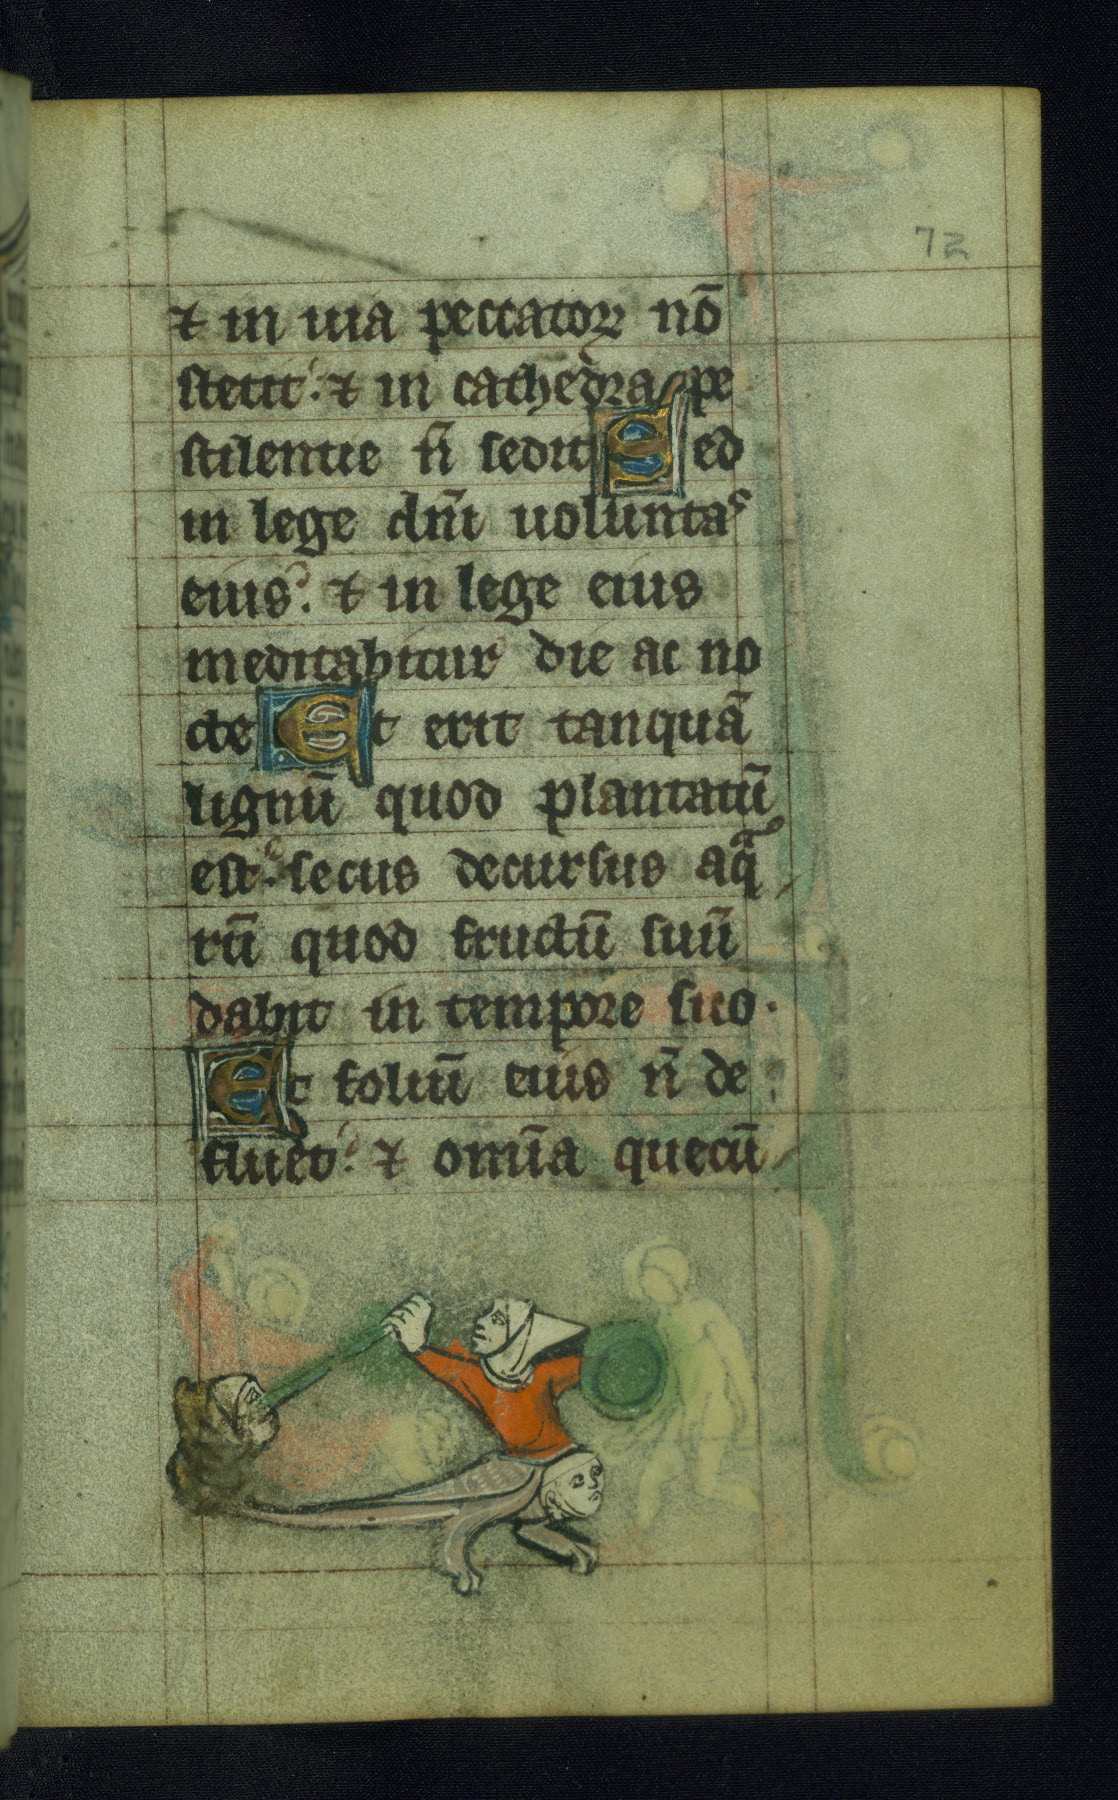 72
⁊ in uia peccatoꝝ nō
stetit: ⁊ in cathedra pe
stilentie n̄ sedit Eed
in lege dn̄i uoluntas
eius: ⁊ in lege eius
meditabitur die ac no
cte Et erit tanquā
lignū quod plantatū
est: secus decursus aqᷓ
rū quod fructū suū
dabit in tempore suo.
Et foliū eius n̄ de
fluet: ⁊ omīa quecū